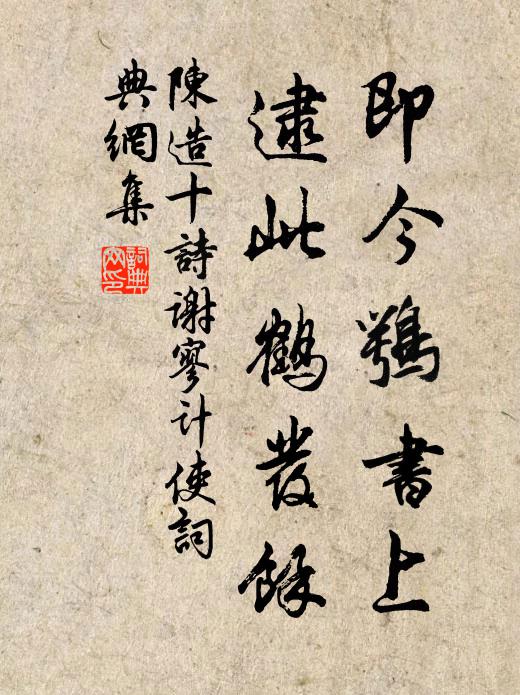 即今鶚書上
逮此鶴發餘
陳造十詩謝寥計使詞
典網集
詞典網印